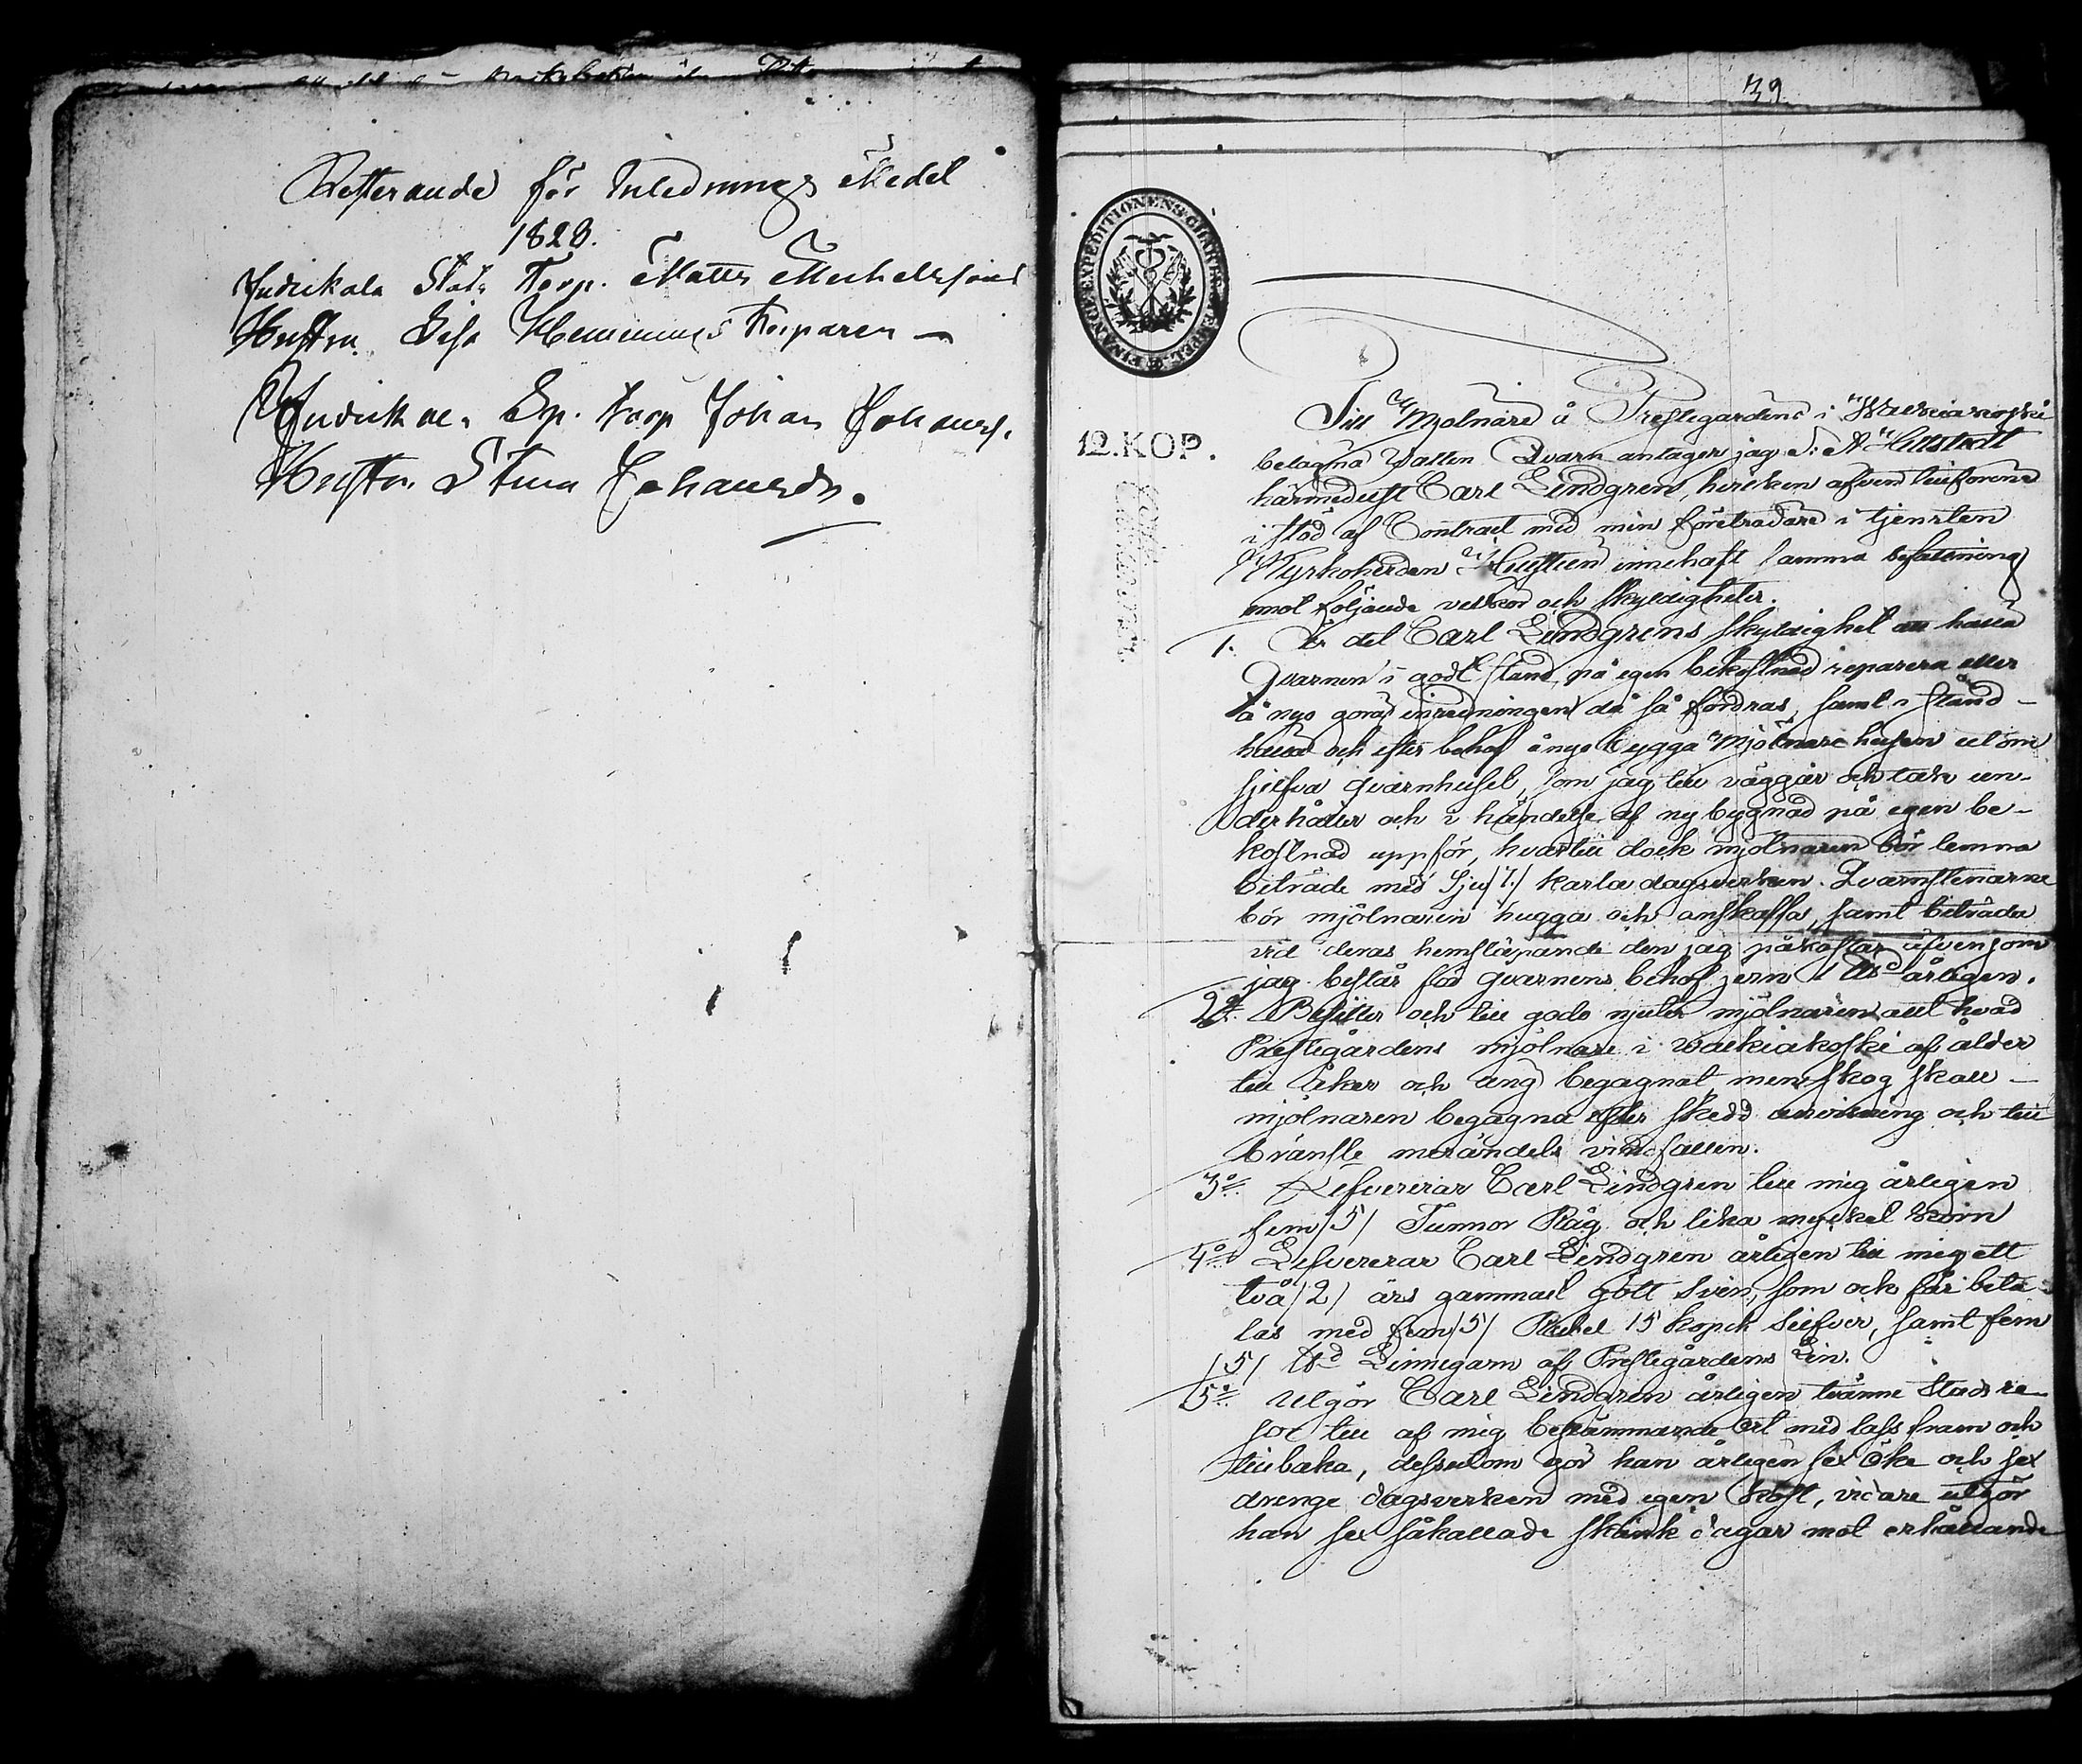 Resterande för Inlednings Skedel
1828.
Judickala Stat. Torp. Matts Michelsson
Hustru. Lisa Hemmings Torparen —
Judickala Sp. torp Johan Johans.
Hustru. Stina Johansdr.
39
FINANCE EXPEDITIONENS CHARTÆ STÆMPEL
12.KOP.
Till Mjölnare å Prestegårdens i Walkiakoski
belägna Vatten Qvarn antager jag S. A.
härmedelst Carl Lindgren, hvilken äfven tillförene
i stöd af Contract med min företrädare i tjensten
Kyrkoherden innehaft samma befattning
emot följande velkor och skyldigheter.
1. Är det Carl Lindgrens skyldighet att hålla
Qvarnen i godt stånd, på egen bekostnad reparera eller
å nyo göra inredningen då så fordras, samt i stånd-
hålla och efter behof å nyo bygga Mjölnare husen utom
sjelfva qvarnhuset, som jag till väggar och tak un-
derhåller och i händelse af ny bygnad på egen be-
kostnad uppför, hvartill dock mjölnaren bör lemna
biträde med Sju /7./ karla dagsverken. Qvarnstenarne
bör mjölnaren hugga och anskaffa, samt biträda
vid deras hemsläpande den jag påkostar äfvensom
jag består för qvarnens behof jern 1 L℔ årligen.
2º Besitter och till godo njuter mjölnaren allt hvad
Prestegårdens mjölnare i Walkiakoski af ålder
till åker och äng begagnat, men skog skall
mjölnaren begagna efter skedd anvisning och till
bränsle merändels vindfallen.
3º Lefvererar Carl Lindgren till mig årligen
fem /5/ Tunnor Råg och lika mycket Korn
4º Lefvererar Carl Lindgren årligen till mig ett
två /2/ års gammalt godt Svin, som ock får beta-
las med fem /5/ Rubel 15 kopek Silfver, samt fem
/5/ ℔ Linnegarn af Prestegårdens Lin.
5º Utgör Carl Lindgren årligen tvänne Stads re-
sor till af mig bestämmande Ort med lass fram och
tillbaka, dessutom gör han årligen sex öke och sex
drenge dagsverken med egen kost, vidare utgör
han sex såkallade skänk dagar mot erhållande